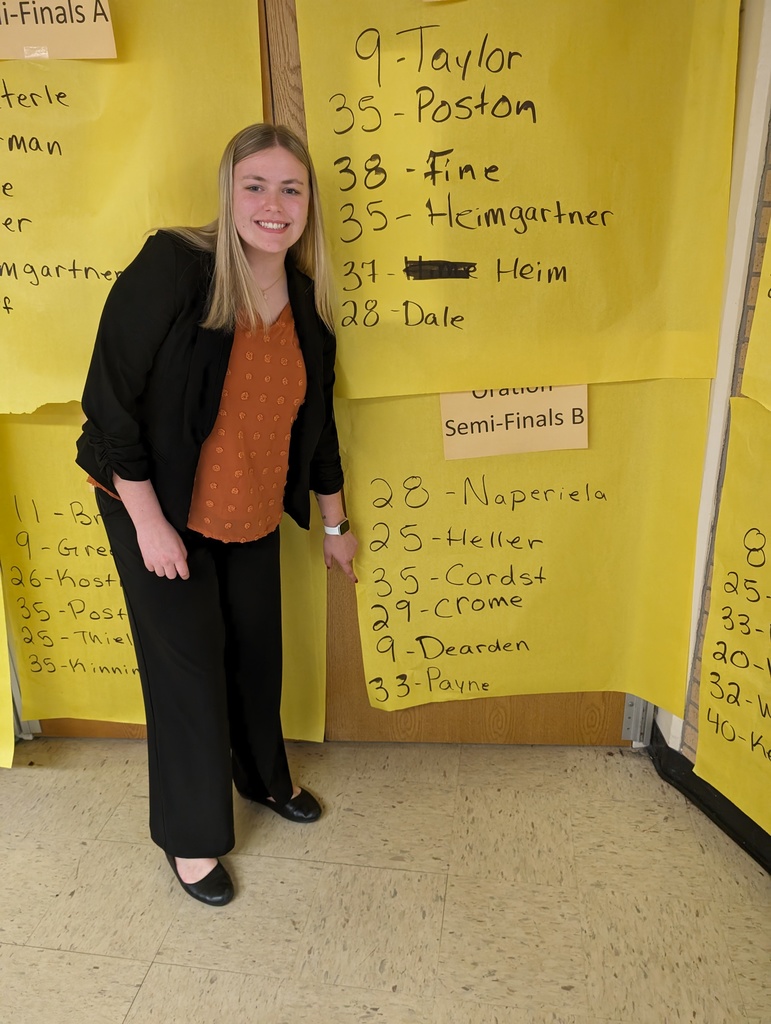 i-Finals A
terle
rman
e
er
mgartner
f
11-Br
9-Gre
26-Kost
35-Post
25-Thiel
35-Kinnin
9-Taylor
35-Poston
38-Fine
35-Heimgartner
37- Heim
28-Dale
Oration
Semi-Finals B
28-Naperiela
25-Heller
35-Cordst
29-Crome
9-Dearden
33-Payne
8
25-
33-
20-
32-W
40-Ke